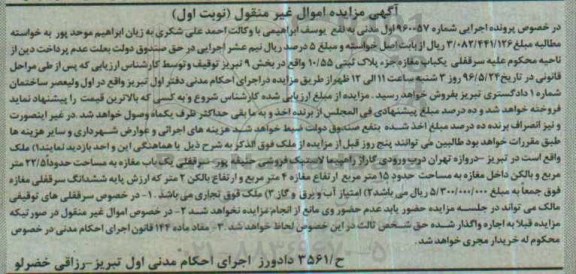 آگهی مزایده اموال غیر منقول (نوبت اول)
در خصوص پرونده اجرایی شماره ۹۶۰۰۵۷ اول مدنی به نفع یوسف ابراهیمی با وکالت احمد علی شکری به زیان ابراهیم موحد پور به خواسته
مطالبه مبلغ ۳/۰۸۲/۴۴۱/۱۲۶ ریال از بابت اصل خواسته و مبلغ ۵ درصد ریال نیم عشر اجرایی در حق صندوق دولت بعلت عدم پرداخت دین از
ناحیه محکوم علیه سرقفلی یکباب مغازه جزء پلاک ثبتی ۱۰/۵۵ واقع در بخش ۹ تبریز توقیف و توسط کارشناس ارزیابی که پس از طی مراحل
قانونی در تاریخ ۹۶/۵/۲۴ روز ۳ شنبه ساعت ۱۱ الی ۱۲ ظهر از طریق مزایده در اجرای احکام مدنی دفتر اول تبریز واقع در اول ولیعصر ساختمان
شماره ۱ دادگستری تبریز بفروش خواهد رسید. مزایده از مبلغ ارزیابی شده کارشناس شروع و به کسی که بالاترین قیمت را پیشنهاد نماید
فروخته خواهد شد و ده درصد مبلغ پیشنهادی فی المجلس از برنده اخذ و به ما بقی حداکثر ظرف یکماه وصول خواهد شد. در غیر اینصورت
و نیز انصراف برنده ده درصد مبلغ اخذ شده بنفع صندوق دولت ضبط خواهد شد هزینه های اجرائی و عوارض شهرداری و سایر هزینه ها
طبق مقررات خواهد بود طالبین می توانند پنج روز قبل از مزایده از ملک فوق الذکر به شرح ذیل با هماهنگی این واحد بازدید نمایند) ملک
واقع است در تبریز -دروازه تهران درب ورودی گاراژ راهپیما لاستیک فروشی حنیفه پور- سرقفلی یک باب مغازه به مساحت حدوداً ۲۲/۵ متر
مربع و بالکن داخل مغازه به مساحت حدود ۱۵ متر مربع ارتفاع مغازه ۴ متر مربع و ارتفاع بالکن ۲ متر که ارزش پایه ششدانگ سرقفلی مغازه
فوق جمعا به مبلغ ۵/۳۰۰/۰۰۰/۰۰۰ ریال می باشد ۲) امتیاز آب و برق و گاز ۳) ملک فوق تجاری می باشد. ۱- در خصوص سرقفلی های توقیفی
مالک می تواند در جلسه مزایده حضور یابد عدم حضور وی مانع از انجام مزایده نخواهد شد ۲- در خصوص اموال غیر منقول در صورتیکه
مزایده قبلا به اجاره واگذار شده حق شخص ثالث در این خصوص لحاظ خواهد شد. ۳- مفاد ماده ۱۴۴ قانون اجرای احکام مدنی در خصوص
محکوم له خریدار مجری خواهد شد.
ح/۳۵۶۱ دادورز اجرای احکام مدنی اول تبریز-رزاقی خضرلو